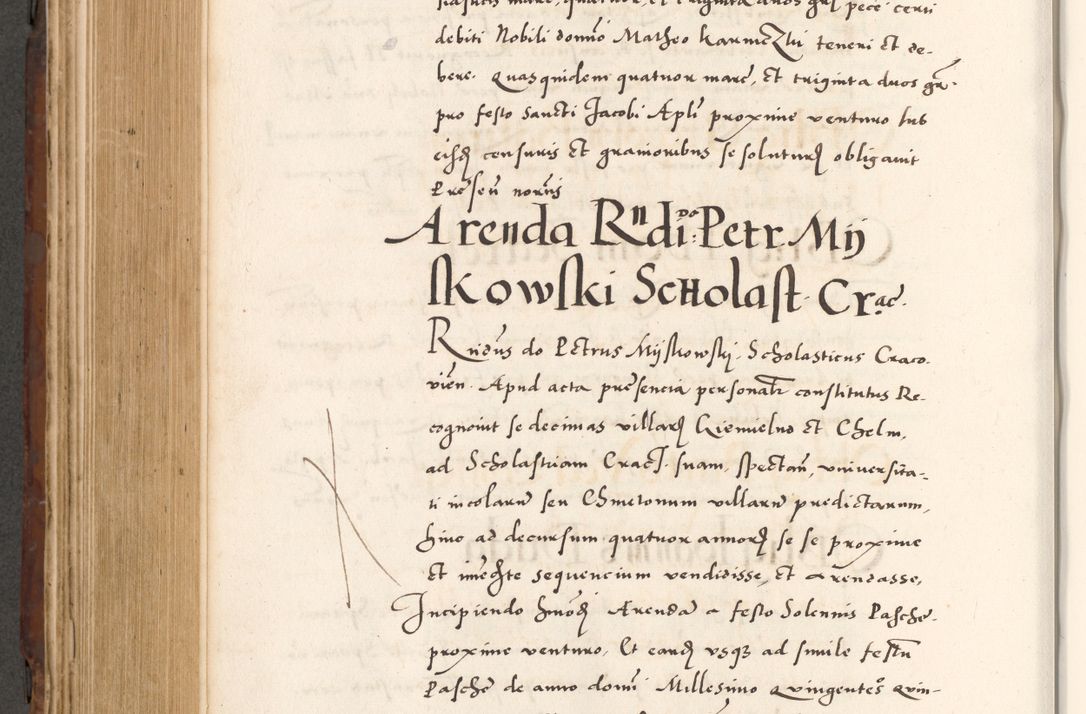 debiti Nobili domno Matheo Karniczki teneri Et de-
bere. Quas quidem quatuor marc, Et triginta duos gr.
pro festo Sancti Jacobi Apli proxime venturo sub
eisd censuris Et gravioribus se soluturd obligavit
Pres seu
Arenda Rndi Do Petr Mij
skowski Scholast. Crac.
Rndus do Petrus Mijskowskj. Scholasticus Craco.
vien. Apud acta presencia personalr constitutus Re-
cognovit se decimas villard et Chelm,
ad Scholastriam Crac. suam, spectan, universita-
ti incolaru seu Chmetonum villaru predictarum,
hinc ad decursum quatuor annord se se proxime
Et imedte sequencium vendidisse, Et Arendasse,
Incipiendo hmodi Arenda a festo Solennis Pasche.
proxime venturo, Et eand usq ad simile festu
Pasche de anno domi Millesimo Quingentes Quin-